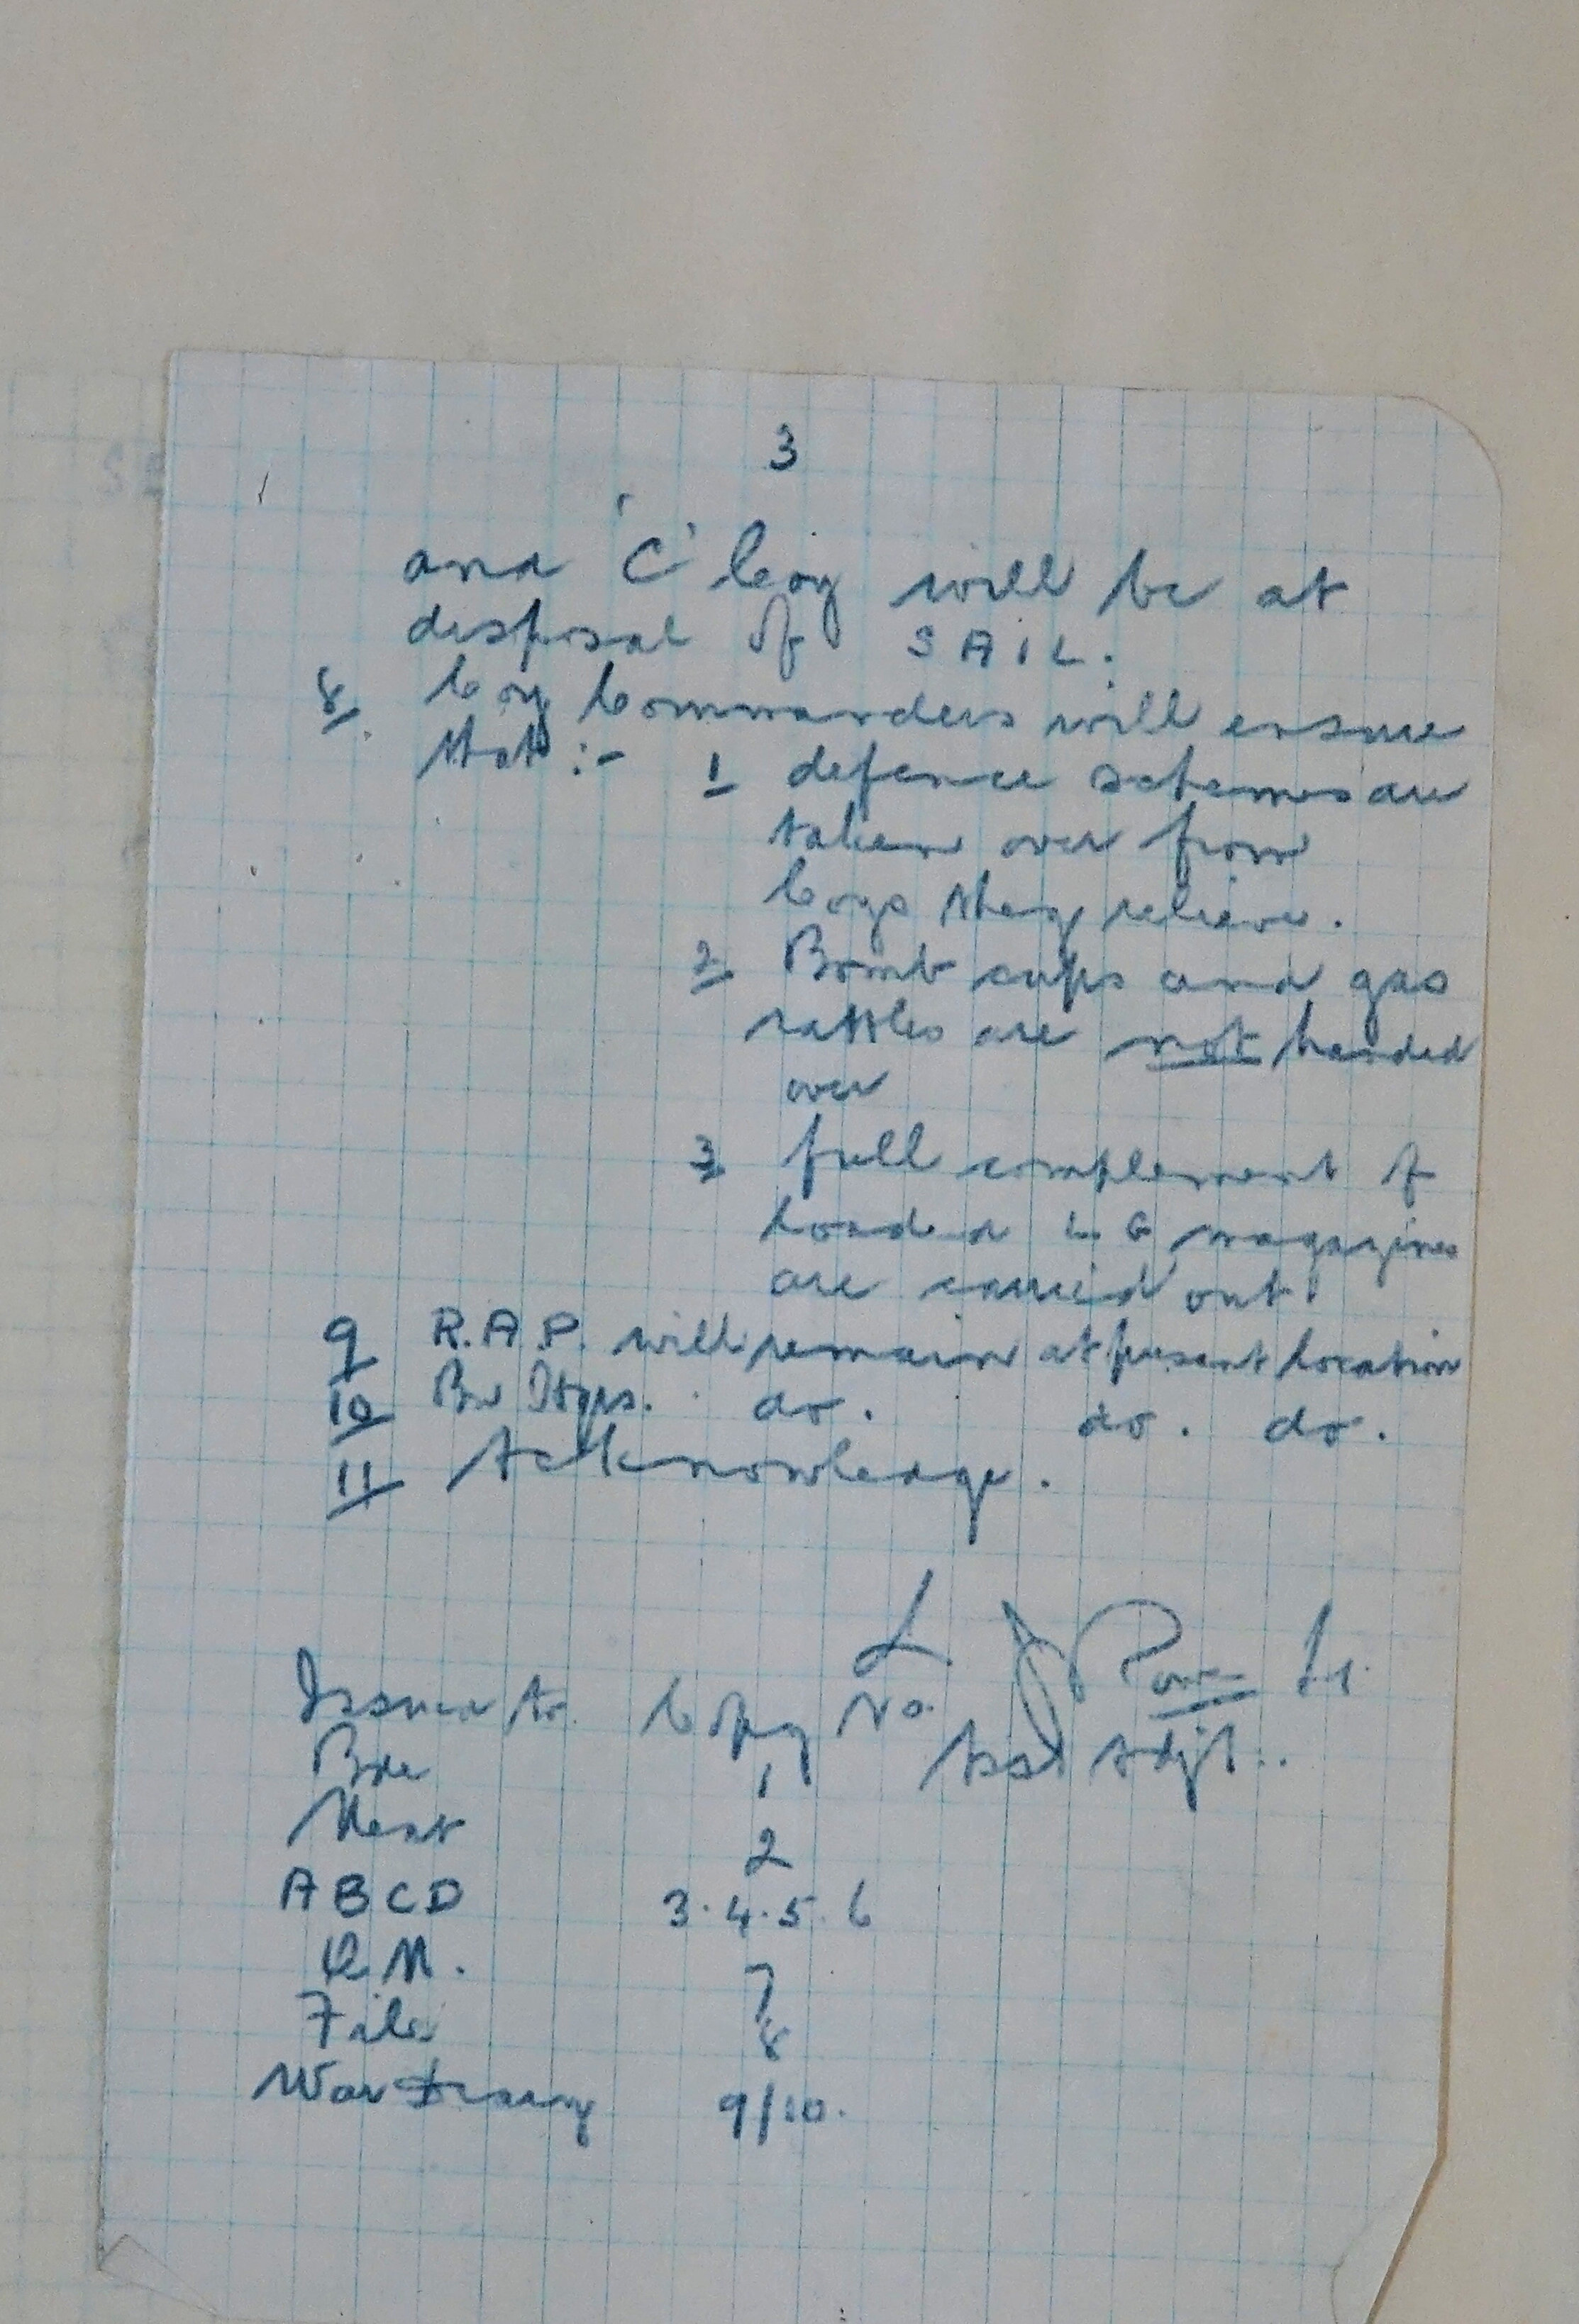 3
and 'C' Coy will be at
disposal of SAIL.
8 Coy Commanders will ensure
that :- 1 defence schemes are
taken over from
Coys they relieve.
2 Bomb cups and gas
rattles are not handed
over
3 full complement of
loaded L G magazines
are carried out.
9 R.A.P. will remain at present location
10 Bn Hqrs. do. do. do.
11 Acknowledge.
Lt.
Issued to. Copy No.
Asst Adjt..
Bde 1
2
A B C D 3.4.5.6
Q M. 7
File 8
War Diary 9/10.